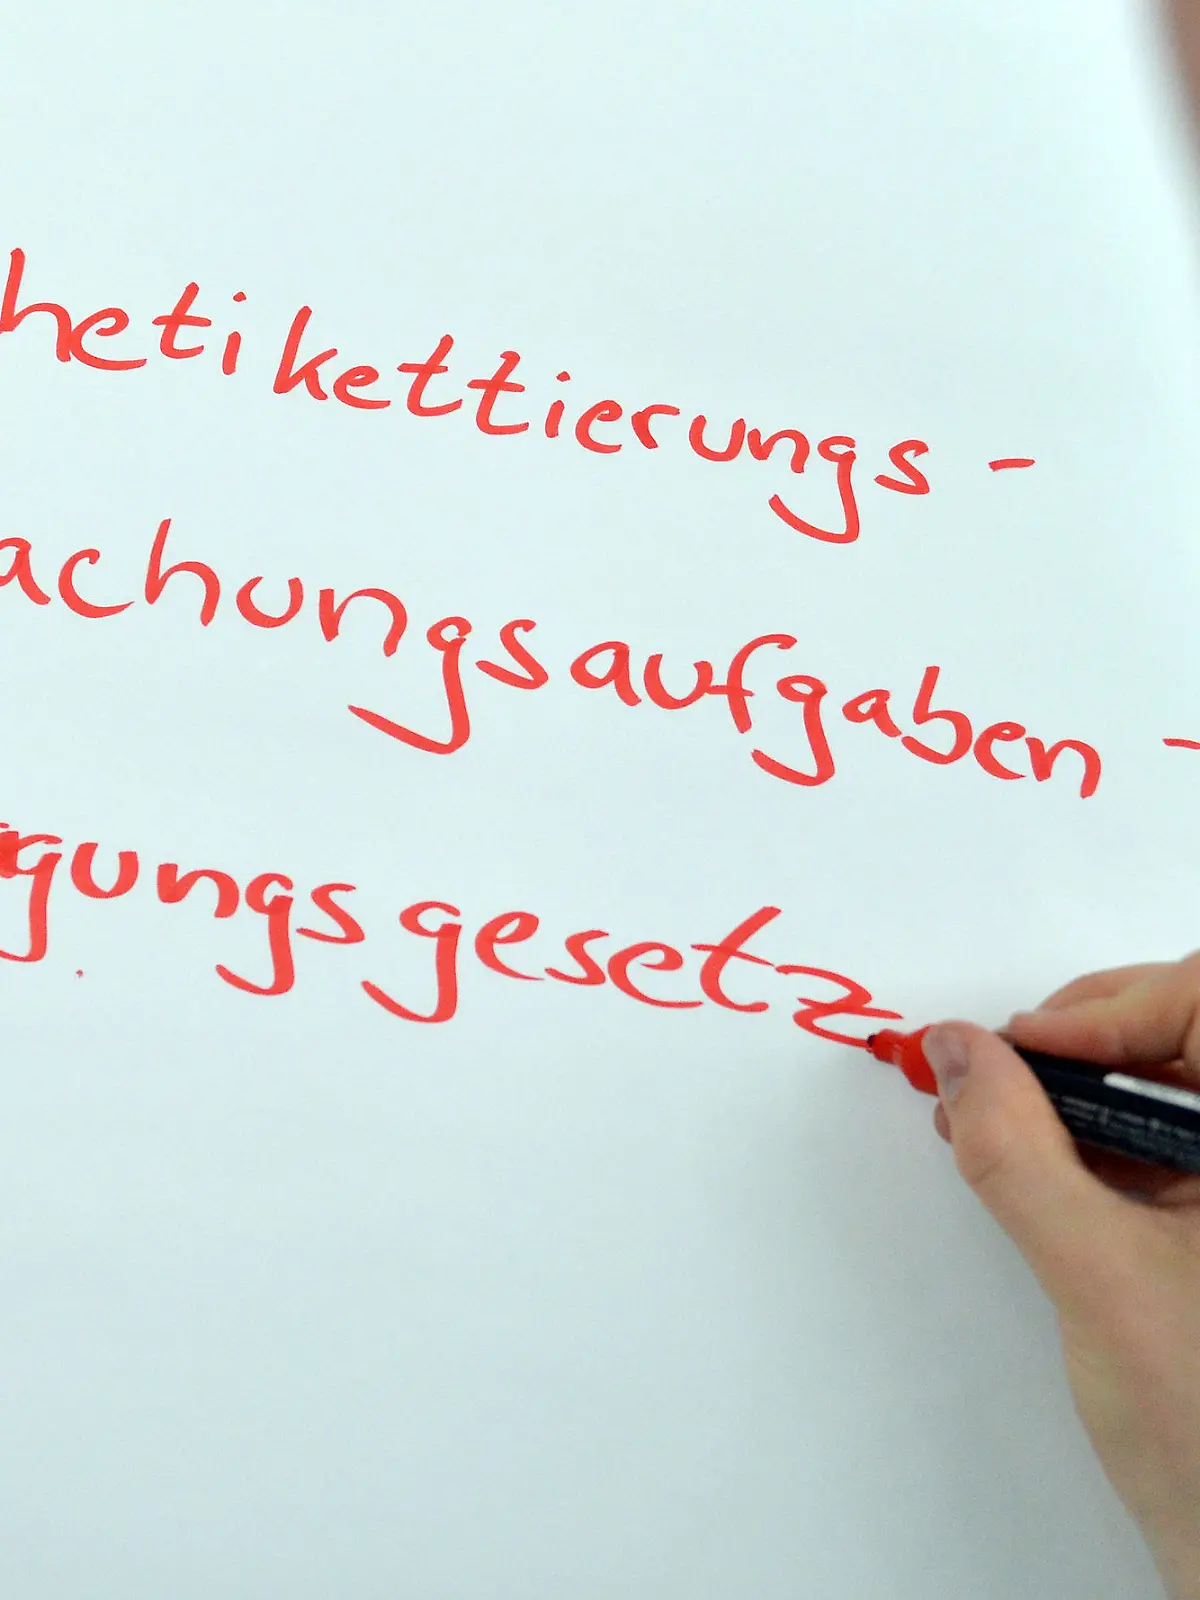 hetikettierungs-
achungsaufgaben-
gungsgesetz